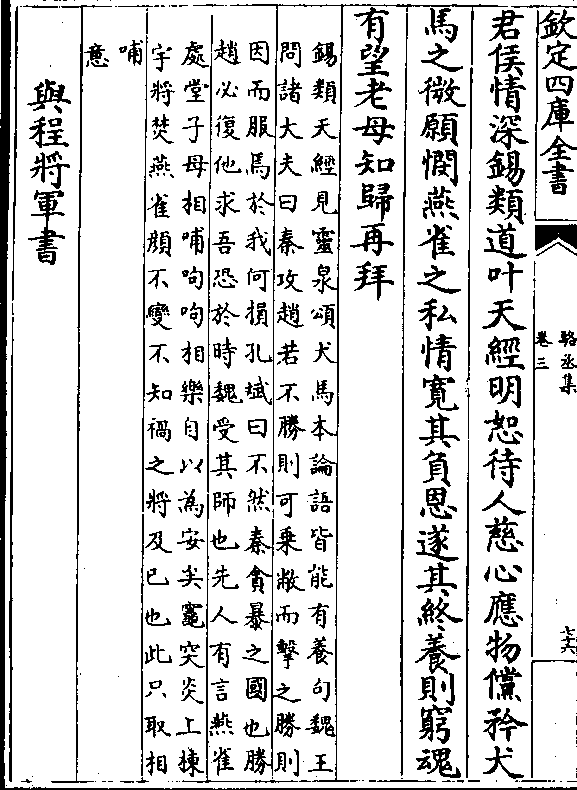 欽定四庫全書
駱丞集
卷三
七六
君侯情深錫類道叶天經明恕待人慈心應物儻矜犬
馬之微願憫燕雀之私情寬其負恩遂其終養則窮魂
有望老母知歸再拜
錫類天經見靈泉頌犬馬本論語皆能有養句魏王
問諸大夫曰秦攻趙若不勝則可乗敝而擊之勝則
因而服焉於我何損孔斌曰不然秦貪暴之國也勝
趙必復他求吾恐於時魏受其師也先人有言燕雀
處堂子母相哺呴呴相樂自以為安矣竈突炎上棟
宇將焚燕雀顔不變不知禍之將及已也此只取相
哺
意
與程將軍書